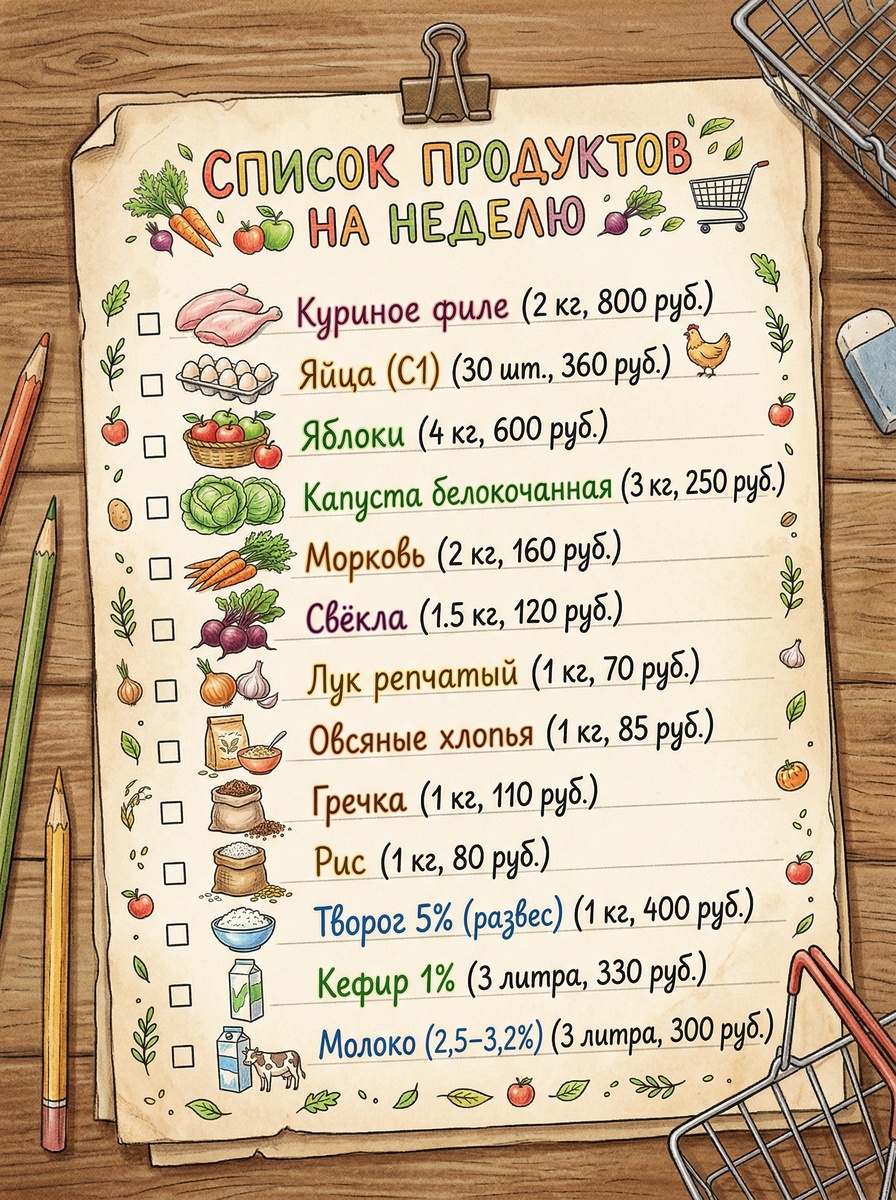 СПИСОК ПРОДУКТОВ
НА НЕДЕЛЮ
Куриное филе (2 кг, 800 руб.)
Яйца (С1) (30 шт., 360 руб.)
Яблоки (4 кг, 600 руб.)
Капуста белокочанная (3 кг, 250 руб.)
Морковь (2 кг, 160 руб.)
Свёкла (1.5 кг, 120 руб.)
Лук репчатый (1 кг, 70 руб.)
Овсяные хлопья (1 кг, 85 руб.)
Гречка (1 кг, 110 руб.)
Рис (1 кг, 80 руб.)
Творог 5% (развес) (1 кг, 400 руб.)
Кефир 1% (3 литра, 330 руб.)
Молоко (2,5–3,2%) (3 литра, 300 руб.)